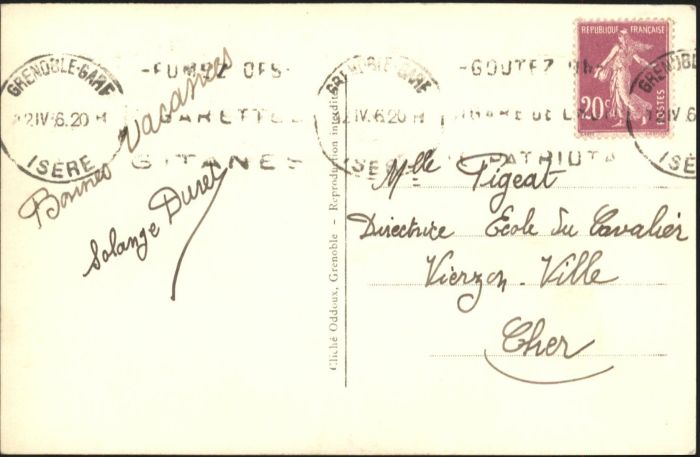 GRENOBLE-GARE
IV 6.20 H
ISÈRE
-FUMEZ DES-
CIGARETTES
GITANES
GRENOBLE-GARE
IV.6.20 H
ISÈRE
-GOUTEZ
PATRIOTA
GRENOBLE-GARE
IV 6
ISÈRE
REPUBLIQUE FRANÇAISE
20c
POSTES
Bonnes vacances
Solange Duret
Cliché Oddoux, Grenoble - Reproduction interdite
Mlle Pigeat
Directrice Ecole du Cavalier
Vierzon-Ville
Cher